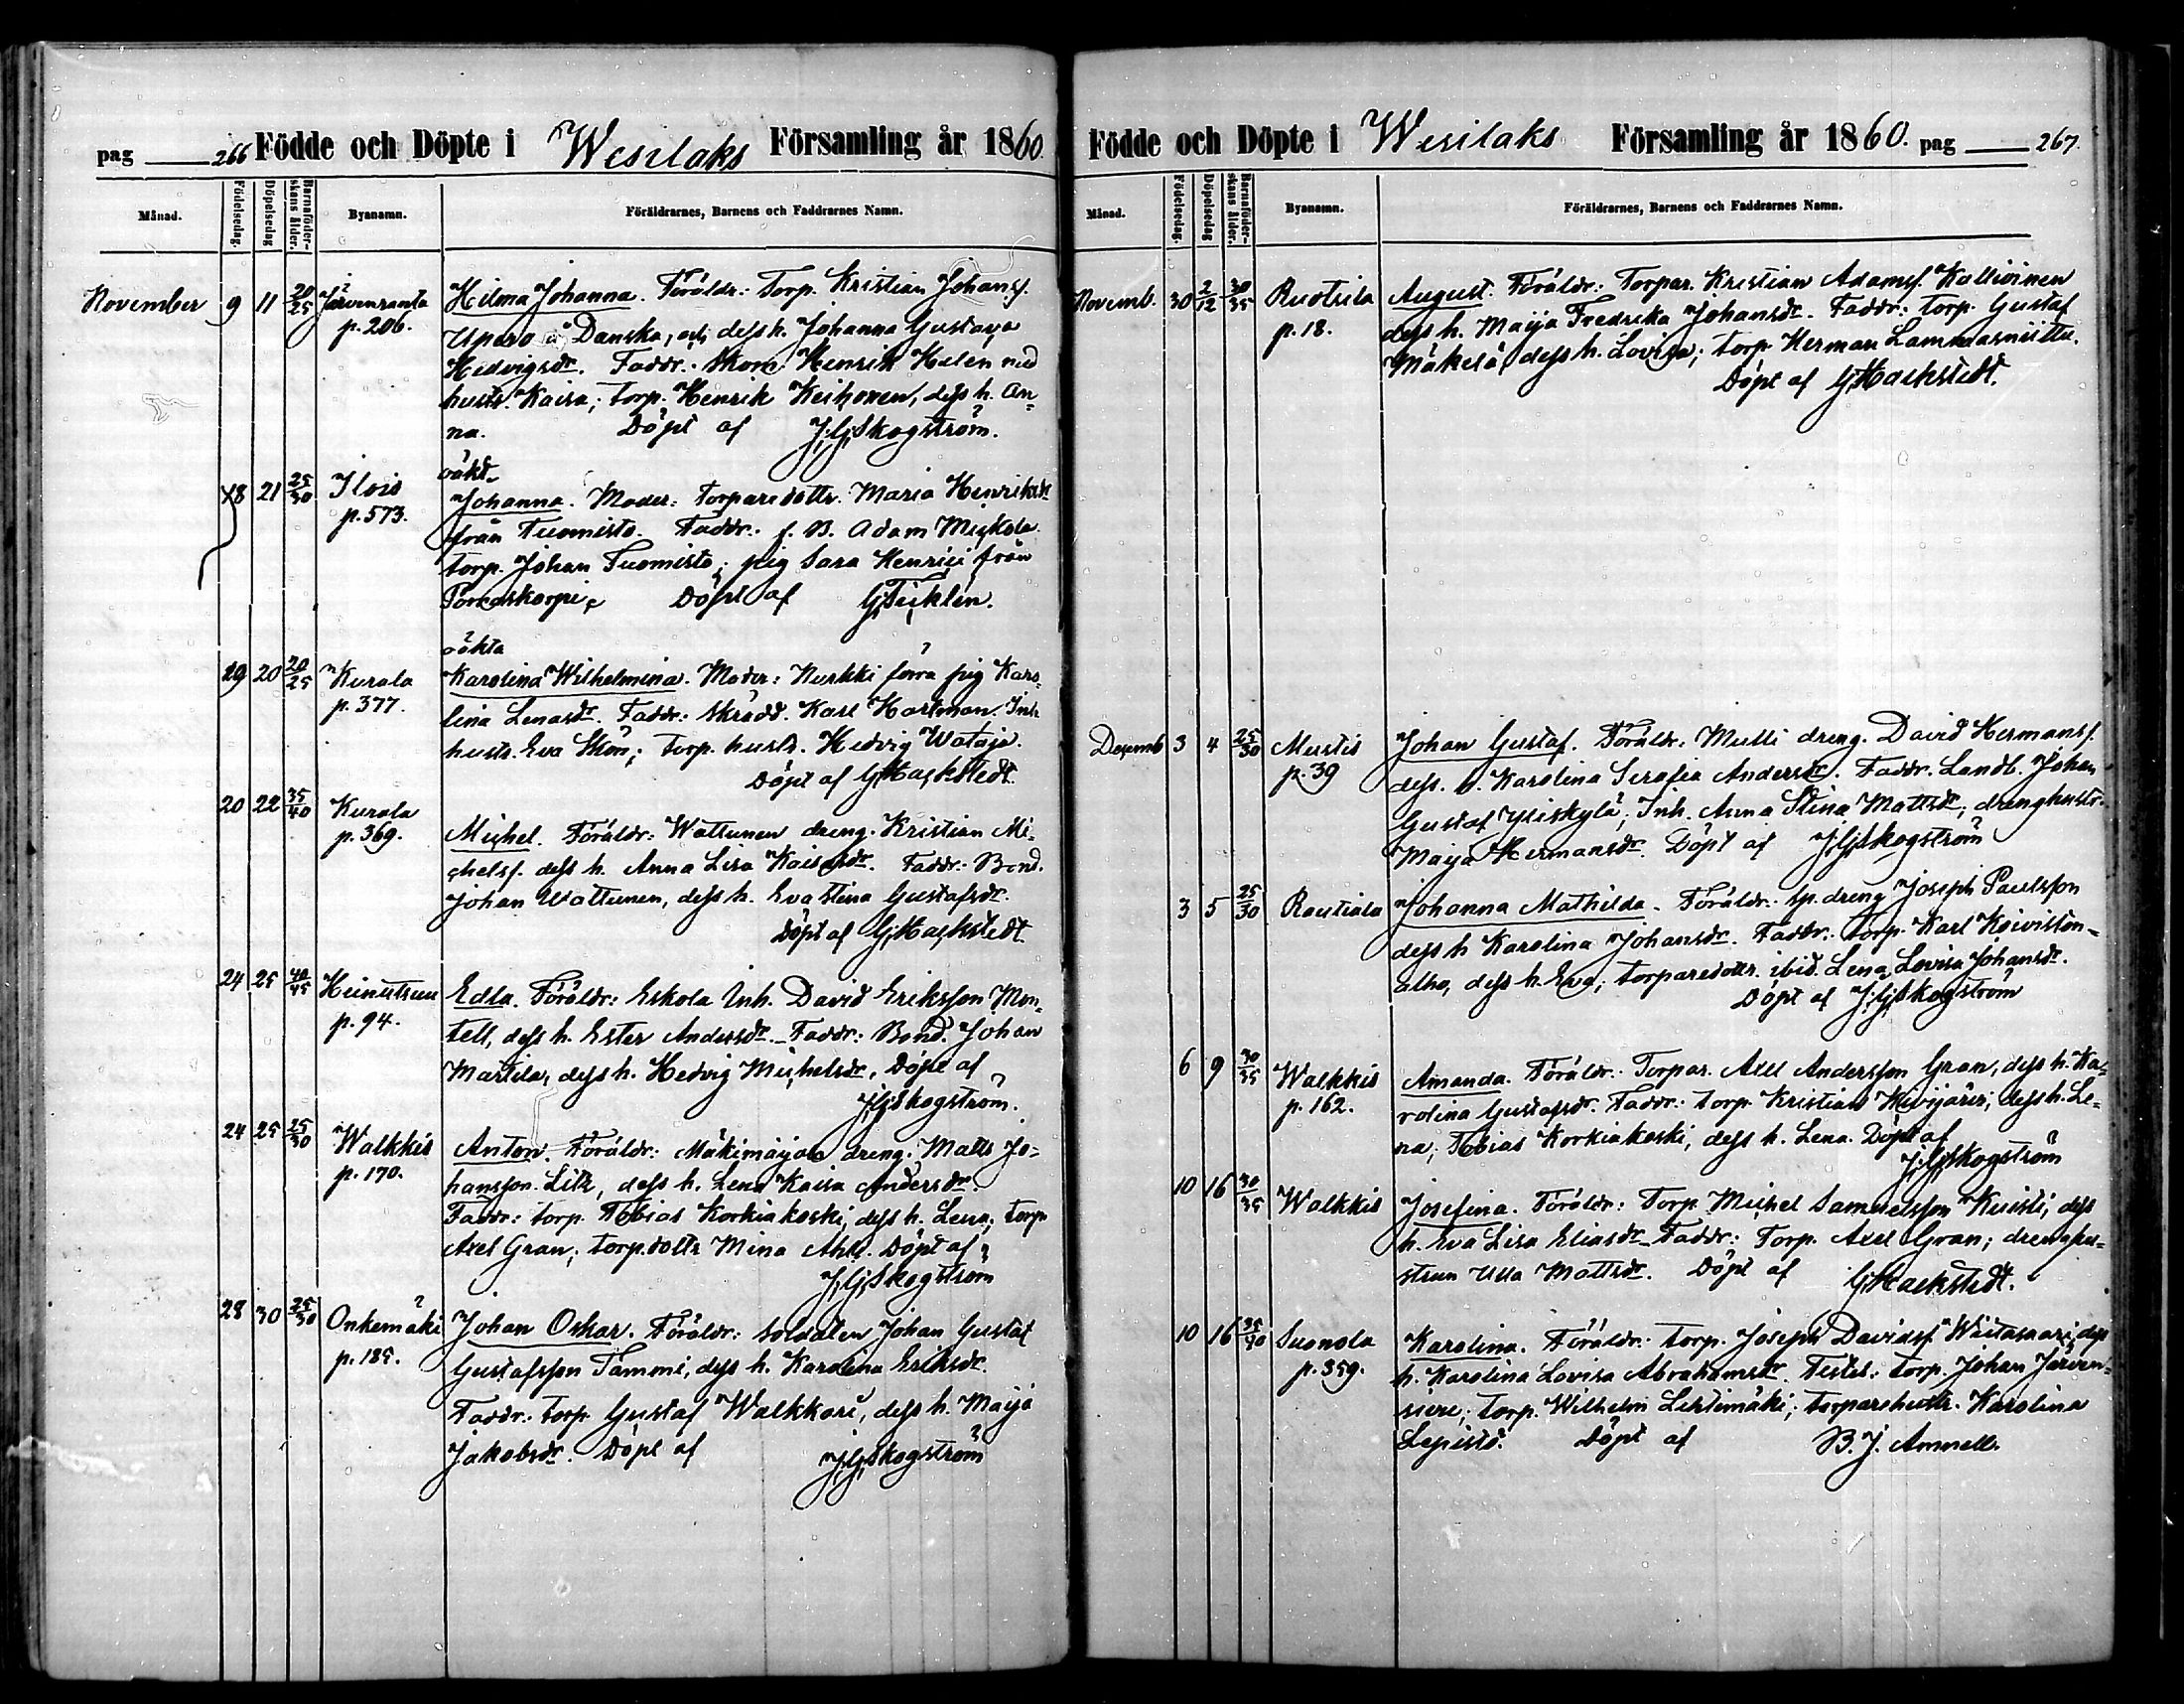 pag 266 Födde och Döpte i Wesilaks Församling år 1860.
Månad. Födelsedag. Döpelsedag Barnaföderskans ålder. Byanamn. Föräldrarnes, Barnens och Faddrarnes Namn.
November 9 11 20/25 Järvenranta Hilma Johanna. Föräldr.: Torp. Kristian Johansf.
p. 206. Danska, och dess h. Johanna Gustava
Hedvigsdr. Faddr.: Skom. Henrik Helen med
hustr. Kaisa; torp. Henrik Keihonen, dess h. An=
na. Döpt af J.G. Skogström.
oäkt.
18 21 25/30 Ilois Johanna. Moder: Torparedottr. Maria Henriksdr
p. 573. från Tuomisto. Faddr. f. B. Adam Mickola
torp. Johan Tuomisto; pig Sara Henrici från
Porraskorpi. Döpt af G. Ticklén.
oäkta
19 20 20/25 Kurala Karolina Wilhelmina. Moder: Kurkki förra pig Karo=
p. 377. lina Lenasdr. Faddr.: Skrädd. Karl Hartman. Inh.
hustr. Eva Skön; torp. hustr. Hedvig Wataja.
Döpt af G. Hackstedt.
20 22 35/40 Kurala
p. 369. Michel. Föräldr: Wattunen dreng. Kristian Mi=
chelsf. dess h. Anna Lisa Kaisasdr. Faddr: Bond.
Johan Wattunen, dess h. Eva Stina Gustafsdr.
Döpt af G. Hackstedt.
24 25 40/45 Heinutsuu Edla. Föräldr: Eskola Inh. David Eriksson Mon=
p. 94. tell, dess h. Ester Andersdr. Faddr: Bond. Johan
Martila, dess h. Hedvig Michelsdr, Döpt af
J.G. Skogström.
24 25 25/30 Walkkis Anton. Föräldr: Mäkimaijala dreng. Matts Jo=
p. 170. hansson Litz, dess h. Lena Kaisa Andersdr.
Faddr: torp. Tobias Korkiakoski, dess h. Lena; torp
Axel Gran; torp.dottr Mina Ahl. Döpt af
J.G. Skogström
28 30 25/30 Onkemäki Johan Oskar. Föräldr: Soldaten Johan Gustaf
p. 185. Gustafsson Tammi, dess h. Karolina Eriksdr.
Faddr: torp Gustaf Walkkari, dess h. Maija
Jakobsdr. Döpt af J.G. Skogström
Födde och Döpte i Wesilaks Församling år 1860. pag 267.
Månad. Födelsedag. Döpelsedag Barnaföderskans ålder. Byanamn. Föräldrarnes, Barnens och Faddrarnes Namn.
Novemb. 30 2/12 30/35 Ruotsila August. Föräldr: Torpar. Kristian Adamsf. Kallioinen
p. 18. dess h. Maija Fredrika Johansdr. Faddr: torp. Gustaf
Mäkelä, dess h. Lovisa; torp Herman Lammasniittu.
Döpt af G. Hackstedt.
Decemb 3 4 25/30 Mustis Johan Gustaf. Föräldr: Mulli dreng. David Hermansf.
p. 39 dess. h. Karolina Serafia Andersdr. Faddr. Landb. Johan
Gustaf Yliskylä; Inh. Anna Stina Mattsdr; drenghustr.
Maija Hermansdr. Döpt af J.G. Skogström
3 5 25/30 Rautiala Johanna Mathilda. Föräldr: sp. dreng Joseph Paulsson
dess h Karolina Johansdr. Faddr: torp. Karl Koiviston=
alho, dess h. Eva; torparedottr. ibid. Lena Lovisa Johansdr.
Döpt af J.G. Skogström
6 9 30/35 Walkkis Amanda. Föräldr: Torpar. Axel Andersson Gran, dess h. Ka=
p. 162. rolina Gustafsdr. Faddr: torp. Kristian Kivijärvi, dess h. Le=
na; Tobias Korkiakoski, dess h. Lena. Döpt af
J.G. Skogström
10 16 30/35 Walkkis Josefina. Föräldr: Torp Michel Samuelsson Kuisti, dess
h. Eva Lisa Eliasdr. Faddr: Torp. Axel Gran; drengehu=
strun Ulla Mattsdr. Döpt af G. Hackstedt.
10 16 35/40 Suonola Karolina. Föräldr: torp. Joseph Davidsf. Wiitasaari, dess
p. 359. h. Karolina Lovisa Abrahamsdr. Testes: torp. Johan Järven=
torp. Wilhelm Lehtimäki; torparehustr. Karolina
Lepistö. Döpt af B. J. Amnell.